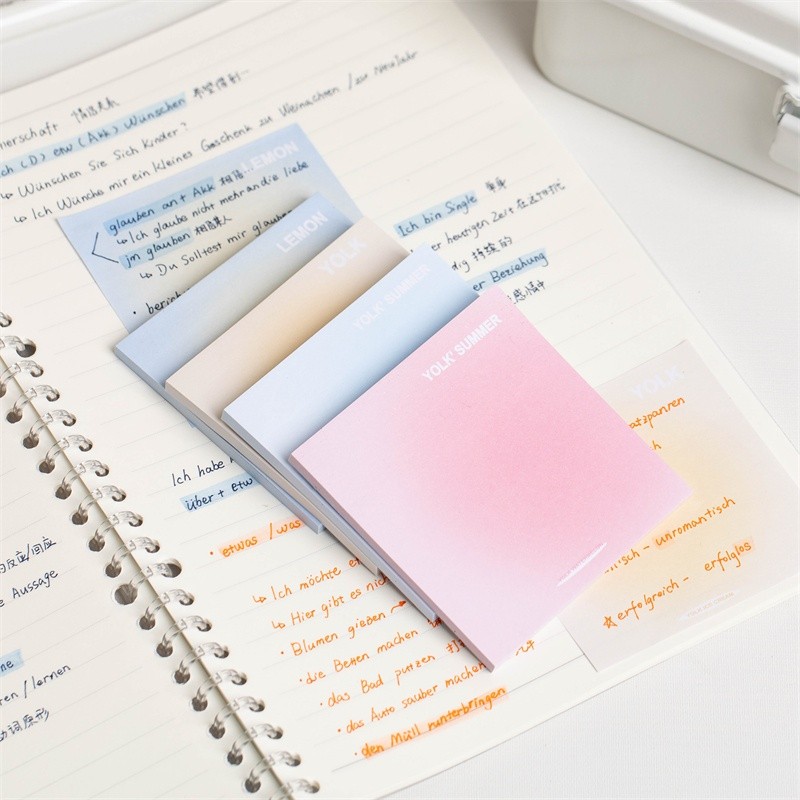 ch (D) etw (Akk) wünschen 希望得到…
↳ Wünschen Sie Sich Kinder?
↳ Ich Wünche mir ein kleines Geschenk zu Weinachten / zur Neujahr
LEMON
glauben an + Akk 相信…
↳ Ich glaube nicht mehr an die liebe
jm glauben 相信某人
↳ Du Solltest mir glauben
LEMON
YOLK
YOLK' SUMMER
YOLK' SUMMER
Ich bin Single 单身
er heutigen Zeit
dig 持续的
er Beziehung
感情中
Ich habe
über + etw
• etwas / was
↳ Ich möchte et
↳ Hier gibt es nich
• Blumen gießen
• die Betten machen
• das Bad putzen
• das Auto sauber machen
• den Müll runterbringen
YOLK
atzspanren
isch - unromantisch
☆ erfolgreich - erfolglos
的反应/回应
e Aussage
me
ren / lernen
动词原形